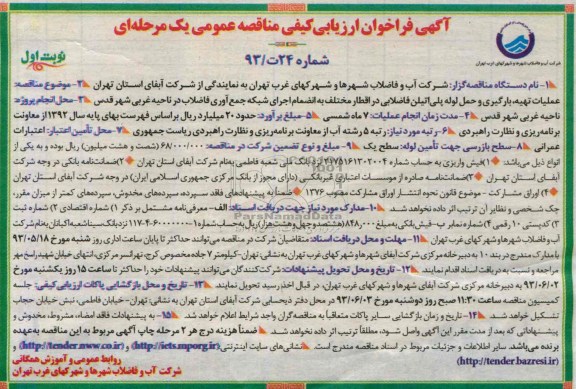 آگهی فراخوان ارزیابی کیفی مناقصه عمومی یک مرحله‌ای
شرکت آب و فاضلاب شهرها و شهرکهای غرب تهران
شماره ۲۴ت/۹۳
نوبت اول
۱- نام دستگاه مناقصه‌گزار: شرکت آب و فاضلاب شهرها و شهرکهای غرب تهران به نمایندگی از شرکت آبفای استان تهران ۲- موضوع مناقصه:
عملیات تهیه، بارگیری و حمل لوله پلی‌اتیلن فاضلابی در اقطار مختلف به انضمام اجرای شبکه جمع‌آوری فاضلاب در ناحیه غربی شهر قدس ۳- محل انجام پروژه:
ناحیه غربی شهر قدس ۴- مدت زمان انجام عملیات: ۷ ماه شمسی ۵- مبلغ برآورد: حدود ۲۰ میلیارد ریال براساس فهرست بهای پایه سال ۱۳۹۲ از معاونت
برنامه‌ریزی و نظارت راهبردی ۶- رتبه مورد نیاز: رتبه ۵ رشته آب از معاونت برنامه‌ریزی و نظارت راهبردی ریاست جمهوری ۷- محل تأمین اعتبار: اعتبارات
عمرانی ۸- سطح بازرسی جهت تأمین لوله: سطح یک ۹- مبلغ و نوع تضمین شرکت در مناقصه: ۶۸۰/۰۰۰/۰۰۰ (ششصد و هشتاد میلیون) ریال بوده و به یکی از
انواع ذیل می‌باشد: ۱) فیش واریزی به حساب شماره نزد بانک ملی شعبه فاطمی به‌نام شرکت آبفای استان تهران ۲) ضمانتنامه بانکی در وجه شرکت
آبفای استان تهران ۳) ضمانتنامه صادره از موسسات اعتباری غیربانکی (دارای مجوز از بانک مرکزی جمهوری اسلامی ایران) در وجه شرکت آبفای استان تهران
۴) اوراق مشارکت - موضوع قانون نحوه انتشار اوراق مشارکت مصوب ۱۳۷۶ ضمناً به پیشنهادهای فاقد سپرده، سپرده‌های مخدوش، سپرده‌های کمتر از میزان مقرر،
چک شخصی و نظایر آن ترتیب اثر داده نخواهد شد. ۱۰- مدارک مورد نیاز جهت دریافت اسناد: الف - معرفی‌نامه مشتمل بر ذکر ۱) شماره اقتصادی ۲) شماره ثبت
۳) کدپستی ۱۰ رقمی ۴) شماره نمابر ب- فیش بانکی به‌مبلغ ریال به‌حساب شماره نزد بانک به‌نام شرکت
آب و فاضلاب شهرها و شهرکهای غرب تهران ۱۱- مهلت و محل دریافت اسناد: متقاضیان شرکت در مناقصه می‌توانند حداکثر تا پایان ساعت اداری روز شنبه مورخ ۹۳/۰۵/۱۸
با مدارک مندرج در بند ۱۰ به دبیرخانه مرکزی شرکت آبفای شهرها و شهرکهای غرب تهران به نشانی تهران- کیلومتر ۷ جاده مخصوص کرج، انتهای خیابان
مراجعه و نسبت به دریافت اسناد اقدام نمایند. ۱۲- تاریخ و محل تحویل پیشنهادات: شرکت‌کنندگان می‌توانند پیشنهادات خود را حداکثر تا ساعت ۱۵ روز یکشنبه مورخ
۹۳/۰۶/۰۲ به دبیرخانه مرکزی شرکت آبفای شهرها و شهرکهای غرب تهران، در قبال اخذ رسید تحویل نمایند. ۱۳- تاریخ و محل بازگشایی پاکات ارزیابی کیفی: جلسه
کمیسیون مناقصه ساعت ۱۱:۳۰ صبح روز دوشنبه مورخ ۹۳/۰۶/۰۳ در محل دفتر ذیحسابی شرکت آبفای استان تهران به نشانی: تهران- خیابان فاطمی، نبش خیابان حجاب
تشکیل خواهد شد. ۱۴- تاریخ و زمان بازگشایی سایر پاکات متعاقباً به مناقصه‌گران واجد شرایط اعلام خواهد شد. ۱۵- به پیشنهادات فاقد امضاء، مشروط، مخدوش و
پیشنهاداتی که بعد از مدت مقرر این آگهی واصل شود، مطلقاً ترتیب اثر داده نخواهد شد. ضمناً هزینه درج هر ۲ مرحله چاپ آگهی مربوط به این مناقصه به‌عهده
برنده می‌باشد. سایر اطلاعات و جزئیات مربوط در اسناد مناقصه مندرج است. نشانی‌های سایت اینترنتی: (http://iets.mporg.ir) و (http://tender.nww.co.ir) و
(http://tender.bazresi.ir)
روابط عمومی و آموزش همگانی
شرکت آب و فاضلاب شهرها و شهرکهای غرب تهران
ParsNamadData